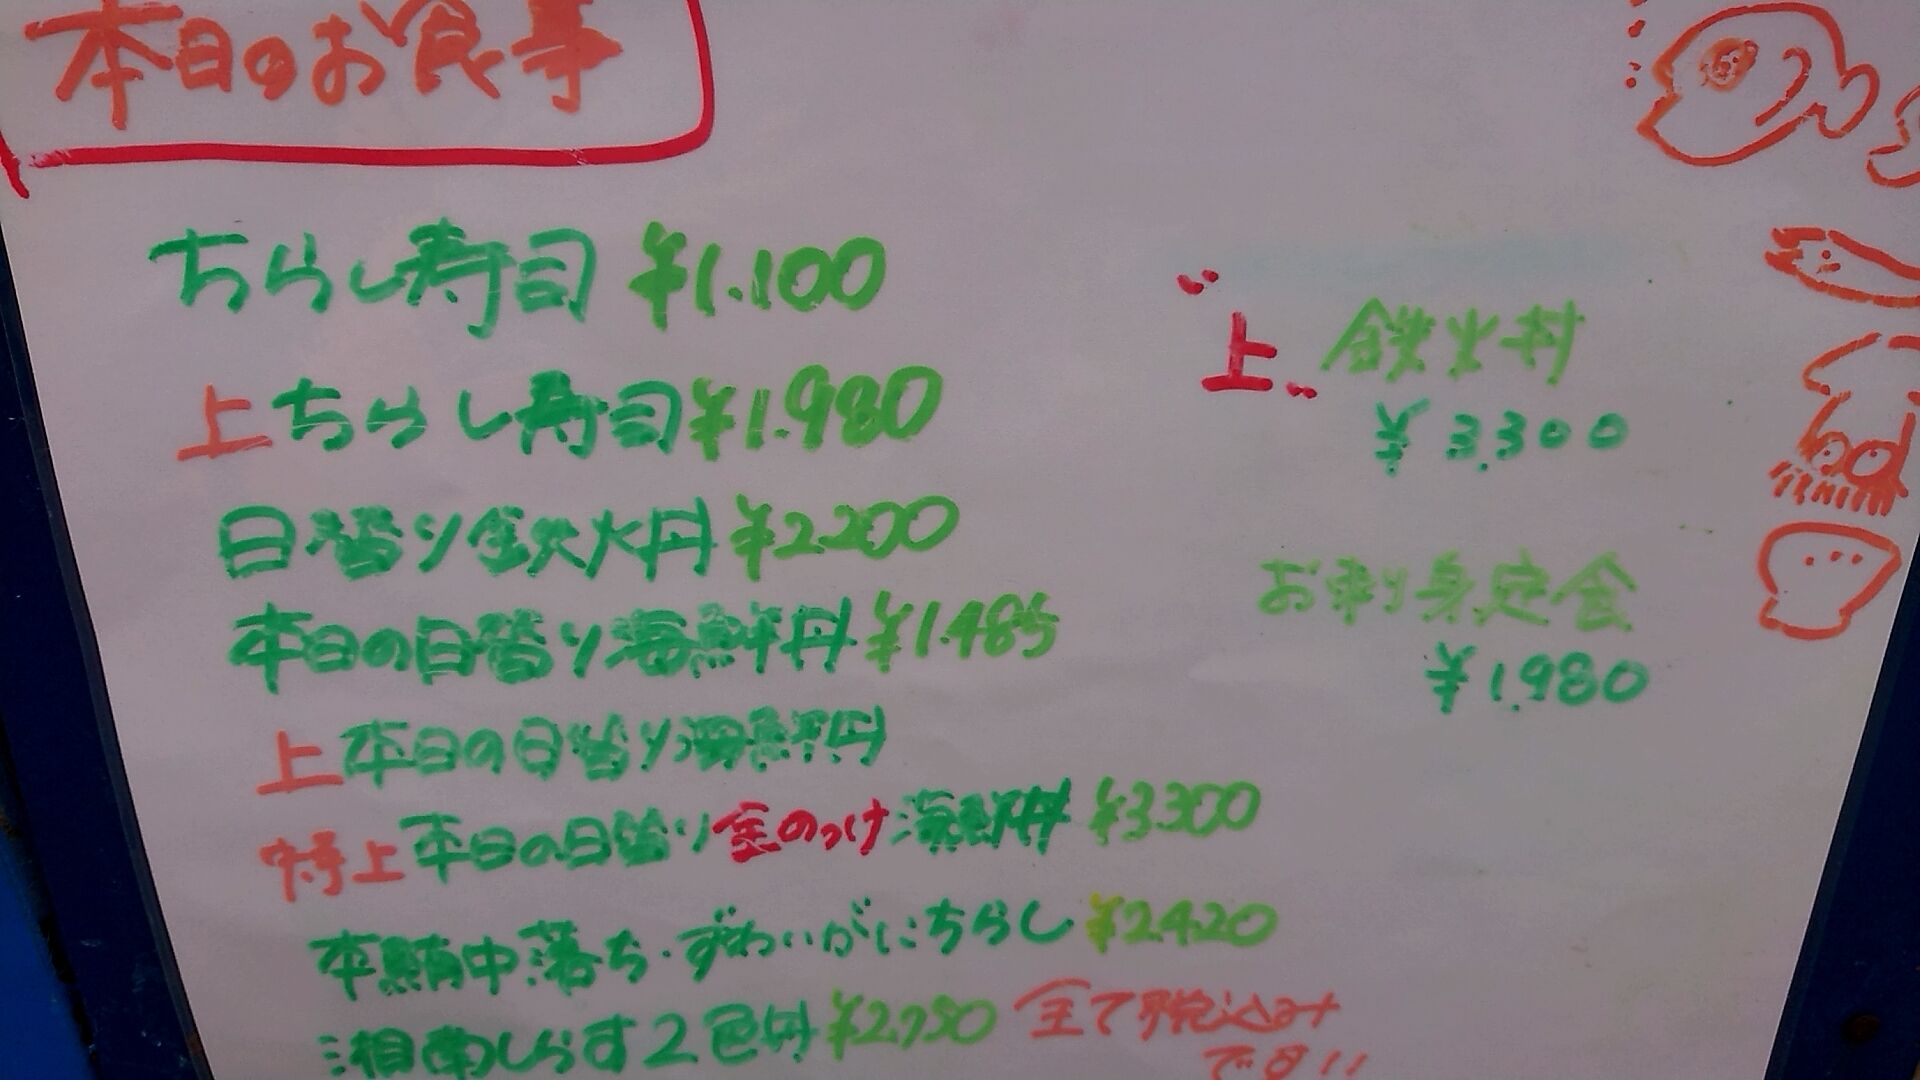 本日のお食事
ちらし寿司 ¥1.100
上ちらし寿司¥1.980
日替り鉄火丼¥2200
本日の日替り海鮮丼¥1.485
上本日の日替り海鮮丼
特上本日の日替り全のっけ海鮮丼 ¥3300
本鮪中落ち・ずわいがにちらし¥2420
湘南しらす2色丼¥2,750
全て税込み
です!!
"上" 鉄火丼
¥3,300
お刺身定食
¥1,980